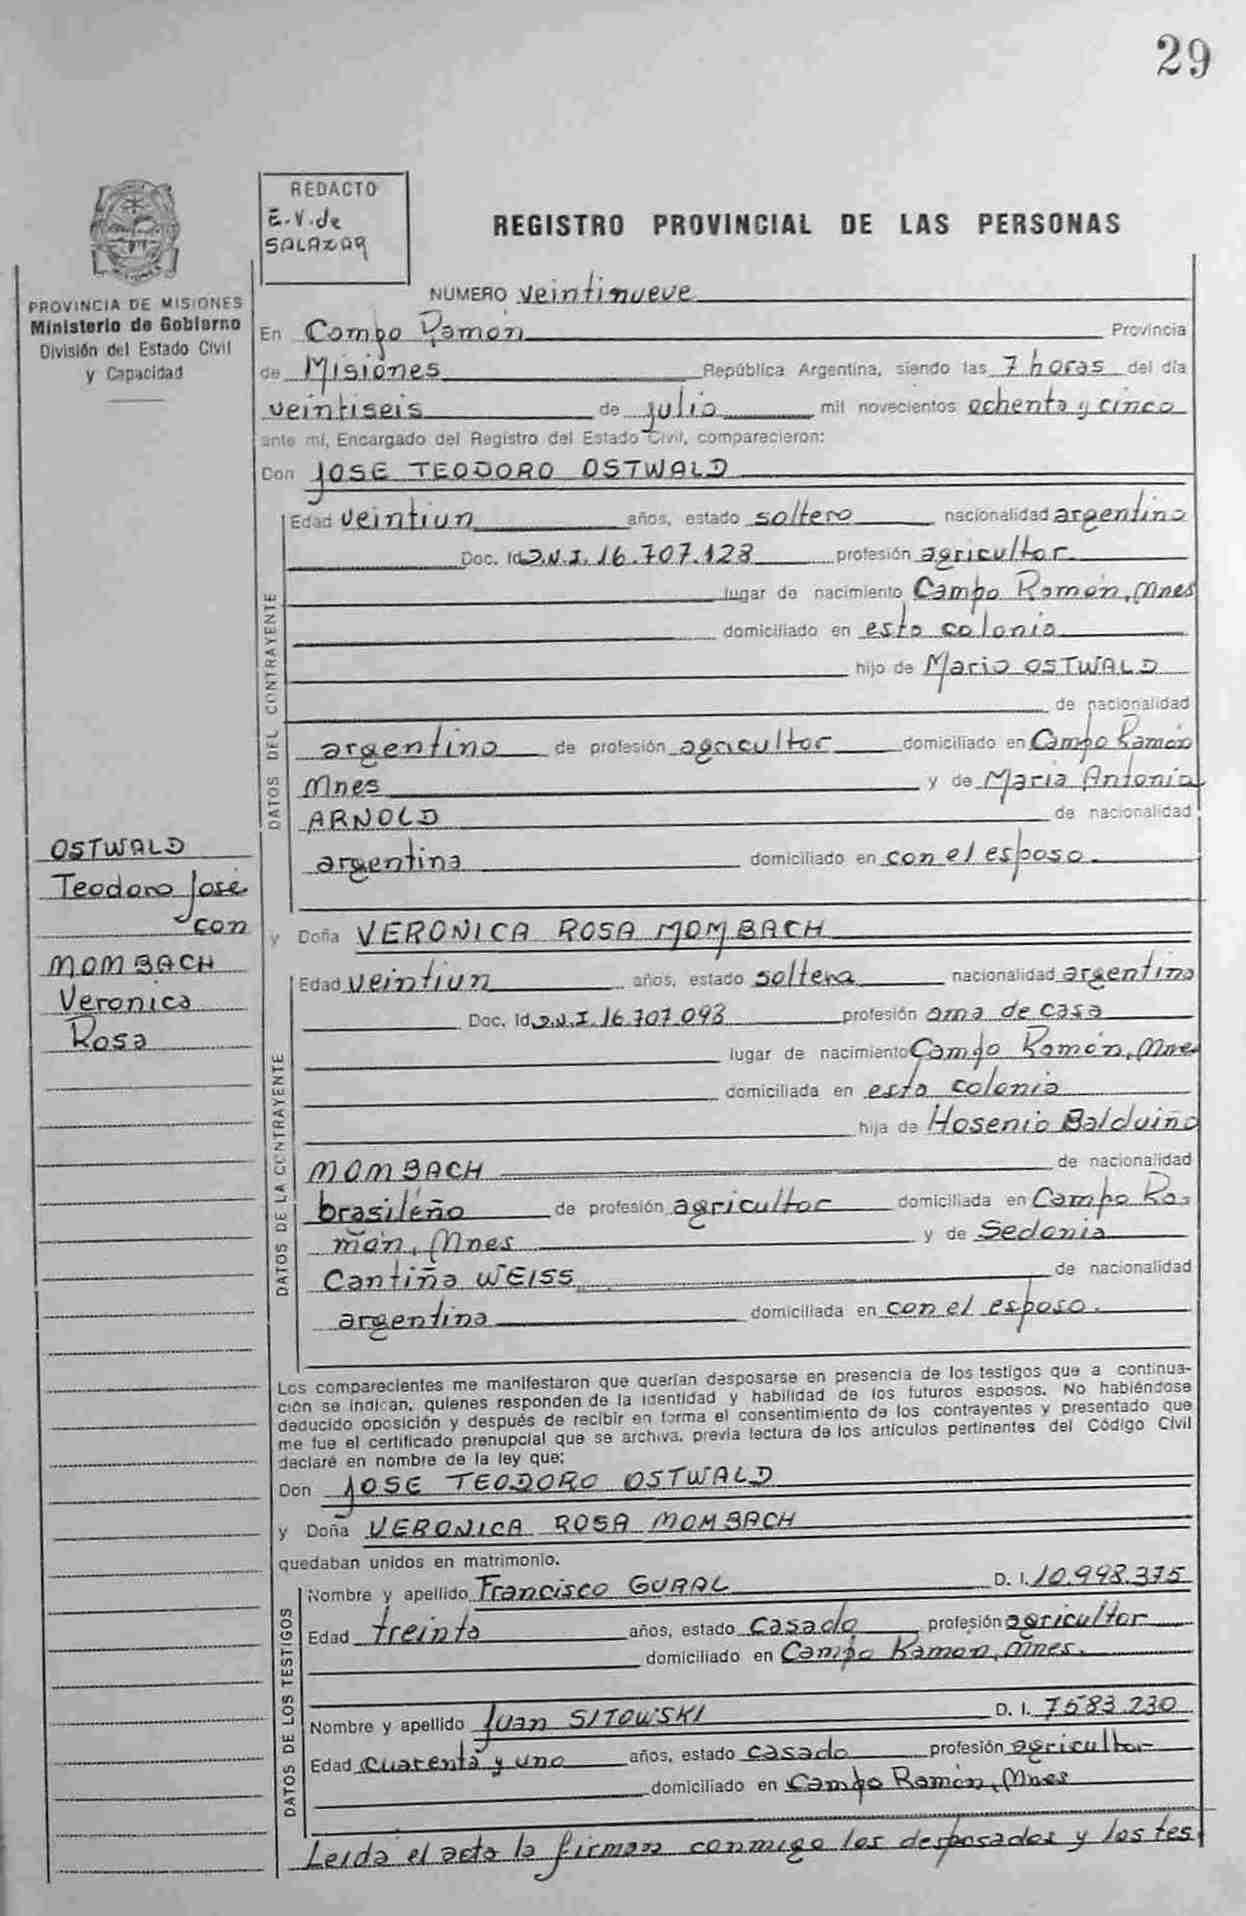 29
REDACTO
E.V. de
SALAZAR
REGISTRO PROVINCIAL DE LAS PERSONAS
PROVINCIA DE MISIONES
Ministerio de Gobierno
División del Estado Civil
y Capacidad
NUMERO veintinueve
En Campo Ramón Provincia
de Misiones República Argentina, siendo las 7 horas del día
veintiseis de julio mil novecientos ochenta y cinco
ante mí, Encargado del Registro del Estado Civil, comparecieron:
Don JOSE TEODORO OSTWALD
DATOS DEL CONTRAYENTE
Edad veintiun años, estado soltero nacionalidad argentina
Doc. Id D.N.I. 16.707.123 profesión agricultor
lugar de nacimiento Campo Ramón, Mnes
domiciliado en esta colonia
hijo de Mario OSTWALD
de nacionalidad
argentino de profesión agricultor domiciliado en Campo Ramón
Mnes y de Maria Antonia
ARNOLD de nacionalidad
argentina domiciliado en con el esposo.
OSTWALD
Teodoro José
con
MOMBACH
Veronica
Rosa
y Doña VERONICA ROSA MOMBACH
DATOS DE LA CONTRAYENTE
Edad veintiun años, estado soltera nacionalidad argentina
Doc. Id D.N.I. 16.707.093 profesión ama de casa
lugar de nacimiento Campo Ramón, Mnes
domiciliada en esta colonia
hija de Hosenio Balduiño
MOMBACH de nacionalidad
brasileño de profesión agricultor domiciliada en Campo Ra-
món, Mnes y de Sedonia
Cantiña WEISS de nacionalidad
argentina domiciliada en con el esposo.
Los comparecientes me manifestaron que querían desposarse en presencia de los testigos que a continua-
ción se indican, quienes responden de la identidad y habilidad de los futuros esposos. No habiéndose
deducido oposición y después de recibir en forma el consentimiento de los contrayentes y presentado que
me fue el certificado prenupcial que se archiva, previa lectura de los artículos pertinentes del Código Civil
declaré en nombre de la ley que:
Don JOSE TEODORO OSTWALD
y Doña VERONICA ROSA MOMBACH
quedaban unidos en matrimonio.
DATOS DE LOS TESTIGOS
Nombre y apellido Francisco GURAL D. I. 10.998.375
Edad treinta años, estado casado profesión agricultor
domiciliado en Campo Ramon, Mnes.
Nombre y apellido Juan SITOWSKI D. I. 7583.230
Edad cuarenta y uno años, estado casado profesión agricultor
domiciliado en Campo Ramón, Mnes
Leida el acta la firman conmigo los desposados y los tes